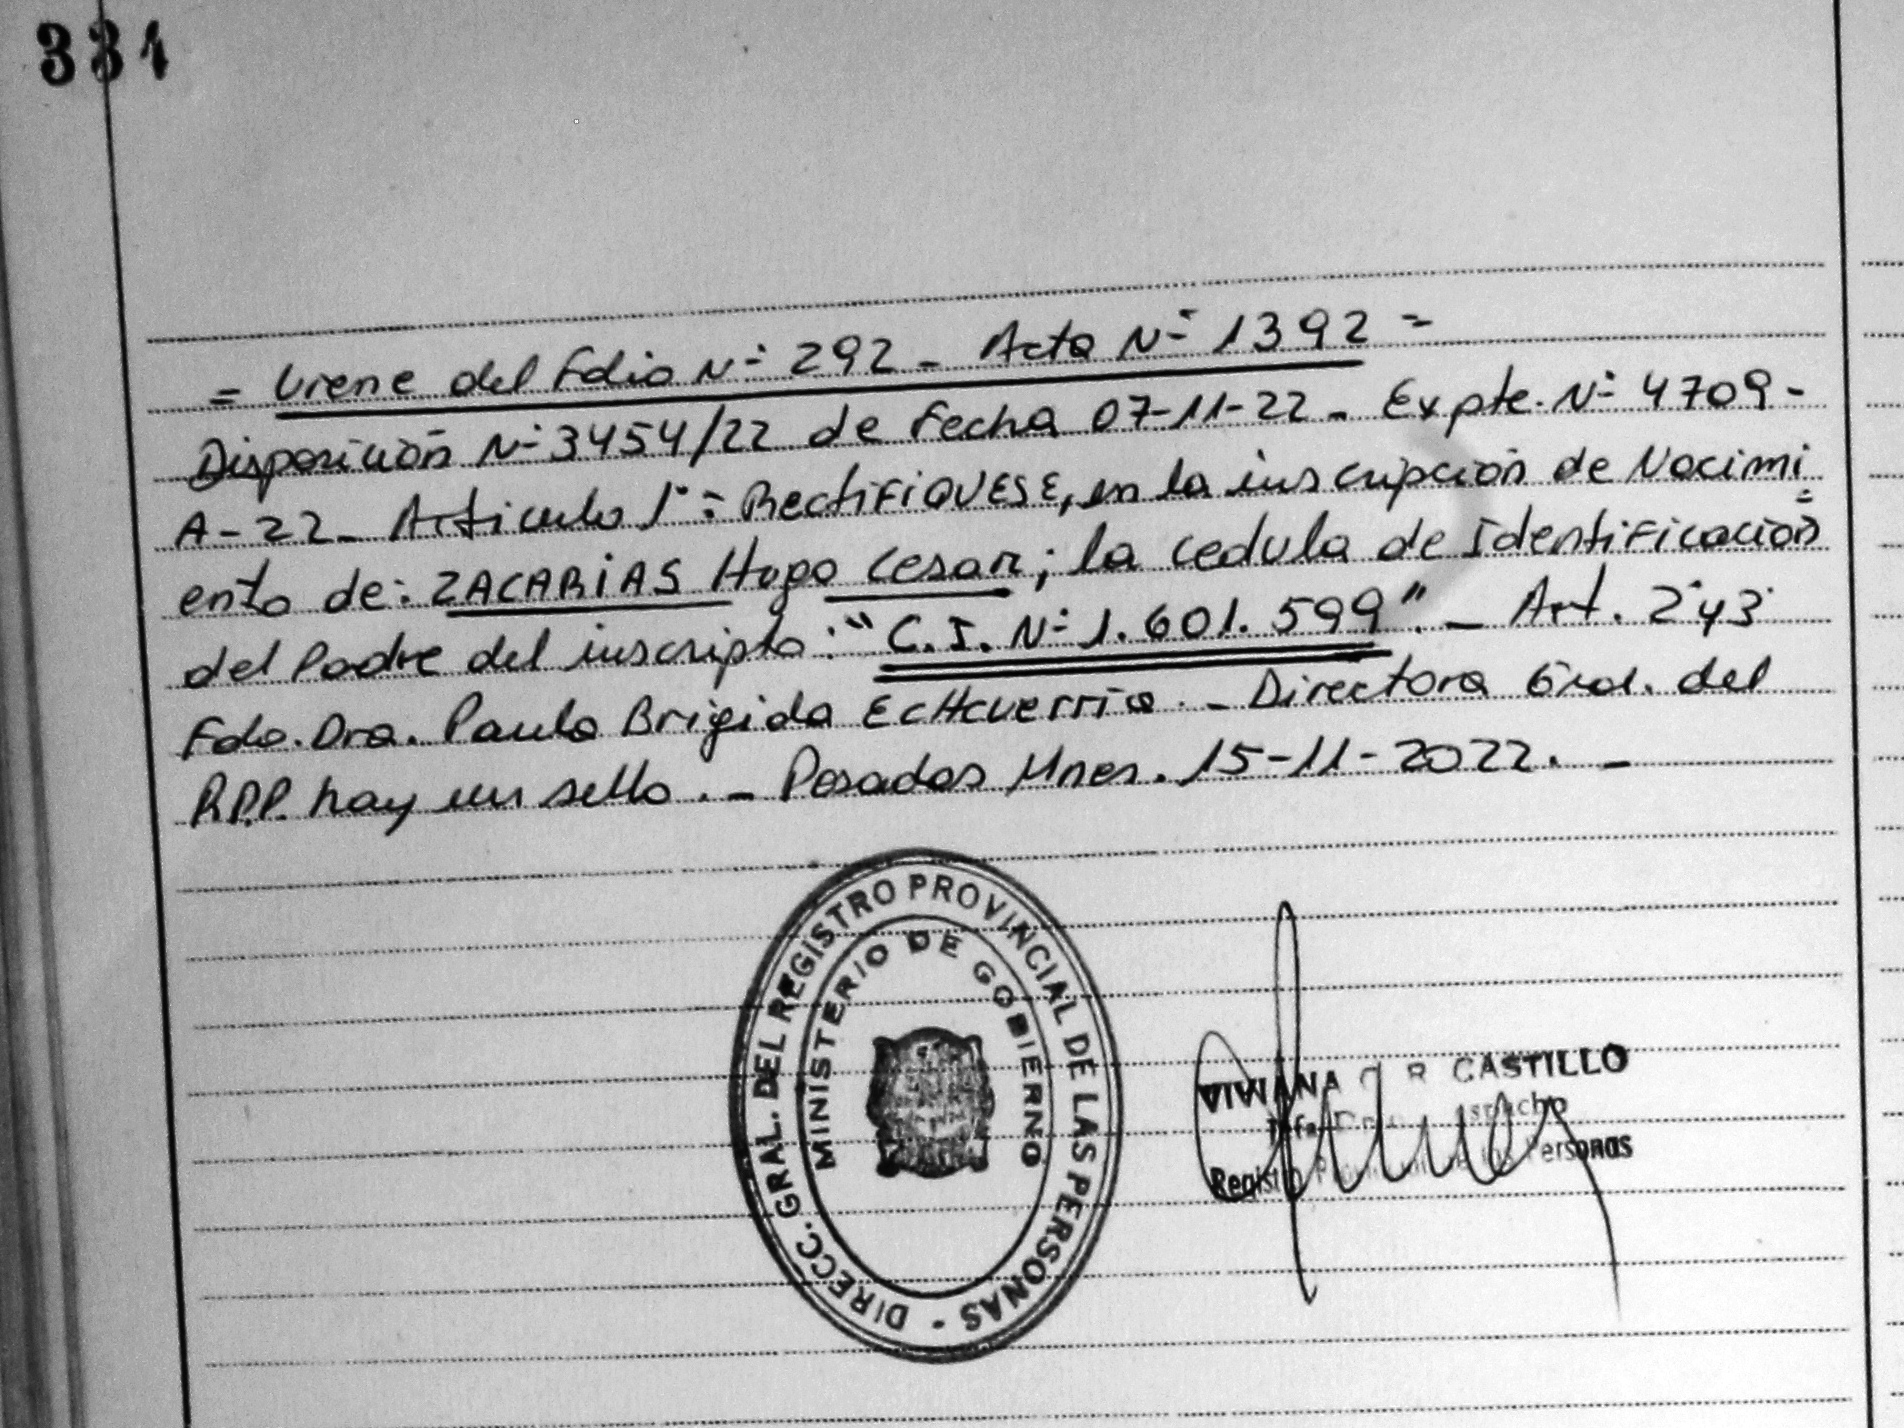 331
= Viene del Folio Nº 292 - Acta Nº 1392 =
Disposición Nº 3454/22 de Fecha 07-11-22 - Expte. Nº 4709-
A-22 - Articulo 1º: RectiFIQUESE, en la inscripción de Nacimi
ento de: ZACARIAS Hugo Cesar; la cedula de Identificación
del Padre del inscripto: "C.I. Nº 1.601.599". - Art. 2º y 3º
Fdo. Dra. Paula Brigida EcHeverria. - Directora Gral. del
R.P.P. hay un sello. - Posadas Mnes. 15-11-2022. -
DIRECC. GRAL. DEL REGISTRO PROVINCIAL DE LAS PERSONAS -
MINISTERIO DE GOBIERNO
VIVIANA R CASTILLO
Registro Personas